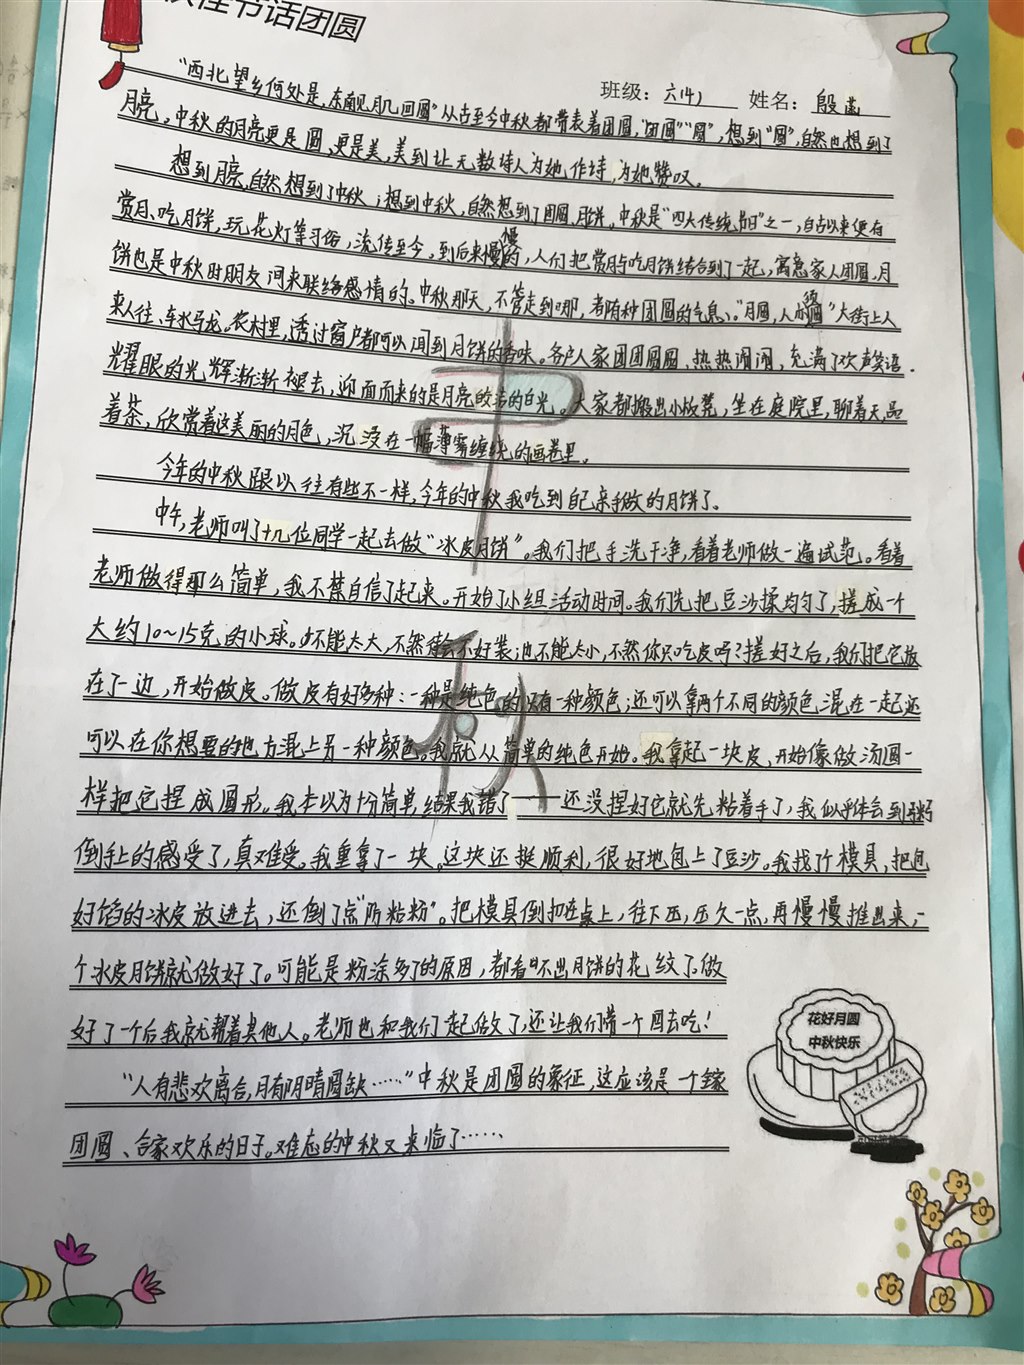 佳节话团圆
班级：六(4) 姓名：殷
“西北望乡何处是，东南见月几回圆”从古至今中秋都带表着团圆，“团圆”“圆”，想到“圆”，自然也想到了
月亮。中秋的月亮更是圆，更是美，美到让无数诗人为她作诗，为她赞叹。
想到月亮，自然想到了中秋；想到中秋，自然想到了团圆，月饼。中秋是“四大传统节日”之一，自古以来便有
赏月、吃月饼，玩花灯等习俗，流传至今。到后来慢慢的，人们把赏月与吃月饼结合到了一起，寓意家人团圆。月
饼也是中秋时朋友间来联络感情的。中秋那天，不管走到哪，都有种团圆的气息。“月圆，人亦圆”大街上人
来人往、车水马龙。农村里，透过窗户都可以闻到月饼的香味。各户人家团团圆圆，热热闹闹，充满了欢声笑语。
耀眼的光辉渐渐褪去，迎面而来的是月亮皎洁的白光。大家都搬出小板凳，坐在庭院里，聊着天，品
着茶，欣赏着这美丽的月色，沉没在一幅薄雾缠绕的画卷里。
今年的中秋跟以往有些不一样，今年的中秋我吃到自己亲手做的月饼了。
中午，老师叫了十几位同学一起去做“冰皮月饼”。我们把手洗干净，看着老师做一遍试范。看着
老师做得那么简单，我不禁自信了起来。开始了小组活动时间。我们先把豆沙揉均匀了，搓成一个
大约10~15克的小球。球不能太大，不然会不好装；也不能太小，不然你只吃皮吗？搓好之后，我们把它放
在了一边，开始做皮。做皮有好多种：一种是纯色的只有一种颜色；还可以拿两个不同的颜色混在一起还
可以在你想要的地方混上另一种颜色。我就从简单的纯色开始。我拿起一块皮，开始像做汤圆一
样把它捏成圆形。我本以为十分简单，结果我错了——还没捏好它就先粘着手了，我似乎体会到粥
倒手上的感受了，真难受。我重拿了一块。这块还挺顺利，很好地包上了豆沙。我找了个模具，把包
好馅的冰皮放进去，还倒了点“防粘粉”。把模具倒扣在桌上，往下压，压久一点，再慢慢推出来，一
个冰皮月饼就做好了。可能是粉涂多了的原因，都看不出月饼的花纹了。做
好了一个后我就帮着其他人。老师也和我们一起做了，还让我们带一个回去吃！
“人有悲欢离合，月有阴晴圆缺……”中秋是团圆的象征，这应该是一个家
团圆、合家欢乐的日子。难忘的中秋又来临了……
中
秋
花好月圆
中秋快乐